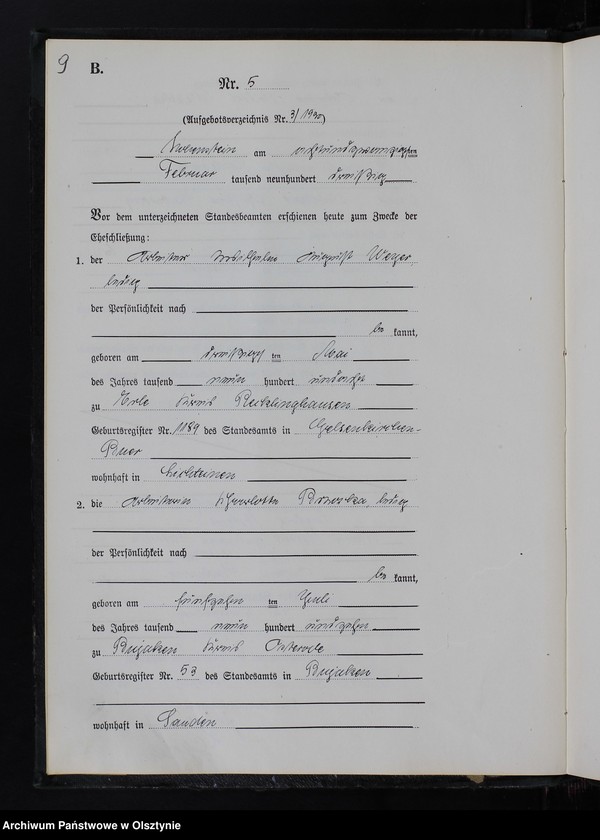 9 B.
Nr. 5
(Aufgebotsverzeichnis Nr. 3/1930)
am achtundzwanzigsten
Februar tausend neunhundert dreißig
Vor dem unterzeichneten Standesbeamten erschienen heute zum Zwecke der
Eheschließung:
1. der Arbeiter Wilhelm August Weyer,
ledig
der Persönlichkeit nach
be kannt,
geboren am dreißigsten Mai
des Jahres tausend neun hundert und
zu Erle Kreis Recklinghausen
Geburtsregister Nr. 1189 des Standesamts in Gelsenkirchen-
Buer
wohnhaft in
2. die Arbeiterin Charlotte ledig
der Persönlichkeit nach
be kannt,
geboren am fünfzehn ten Juli
des Jahres tausend neun hundert undzehn
zu Bujaken Kreis Osterode
Geburtsregister Nr. 53 des Standesamts in Bujaken
wohnhaft in Sauden
Archiwum Państwowe w Olsztynie